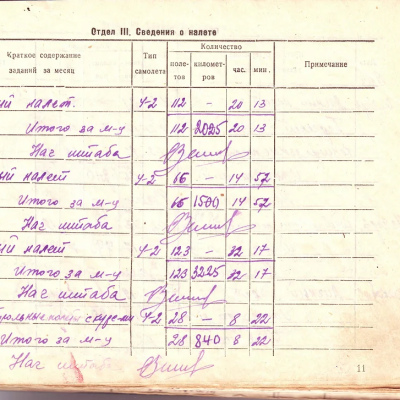 Отдел III. Сведения о налете
Краткое содержание заданий за месяц
Тип самолета
Количество
поле-тов
километ-ров
час.
мин.
Примечание
ый налет. У-2 112 — 20 13
Итого за м-ц 112 2025 20 13
Нач штаба
ый налет У-2 66 — 14 52
Итого за м-ц 66 1500 14 52
Нач штаба
ый налет У-2 123 — 32 17
Итого за м-ц 123 3225 32 17
Нач штаба
У-2 28 — 8 22
Итого за м-ц 28 840 8 22
Нач штаба
11